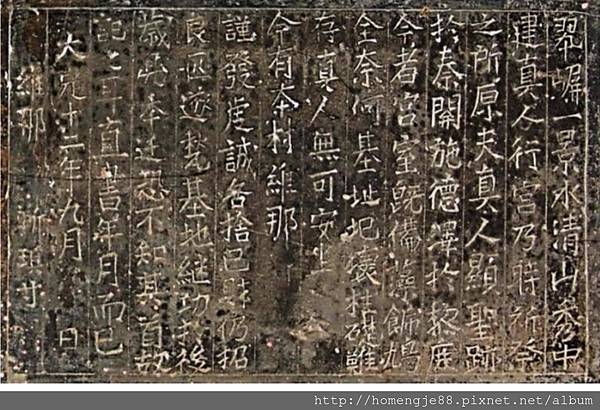 一景水清山秀中
建真人行宮乃時祈祭
之所原夫真人顯聖跡
於秦關施德澤於黎庶
今者宮室既備飾鳩
全奈何基址圮壞柱礎雖
存真人無可安坐
今有本村維那
謹發虔誠各捨己財仍招
良匠逐甃基地繼功於後
歲恐不知其首故
記之耳直書年月而已
大元十二年九月 日
維那
http://homengje88.pixnet.net/album